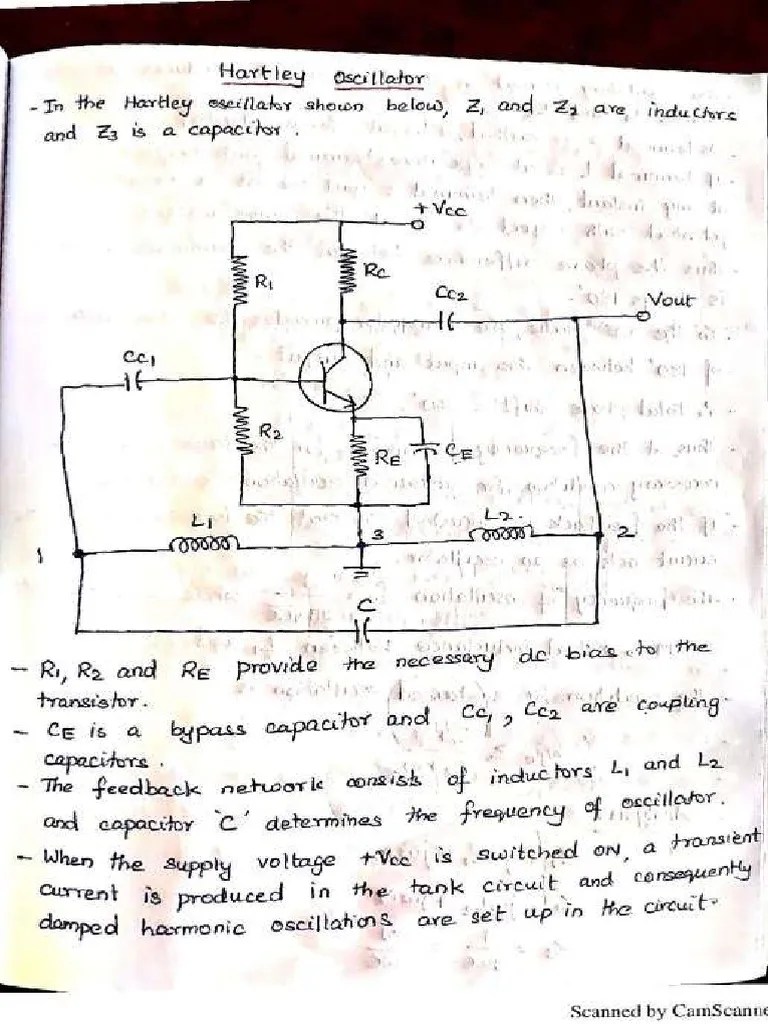 Hartley Oscillator
- In the Hartley oscillator shown below, Z1 and Z2 are inductors
and Z3 is a capacitor.
+Vcc
R1
RC
CC2
Vout
CC1
R2
RE
CE
L1
3
L2
2
1
C
- R1, R2 and RE provide the necessary dc bias to the
transistor.
- CE is a bypass capacitor and CC1, CC2 are coupling
capacitors.
- The feedback network consists of inductors L1 and L2
and capacitor 'C' determines the frequency of oscillator.
- When the supply voltage +Vcc is switched ON, a transient
current is produced in the tank circuit and consequently
damped harmonic oscillations are set up in the circuit.
Scanned by CamScanne